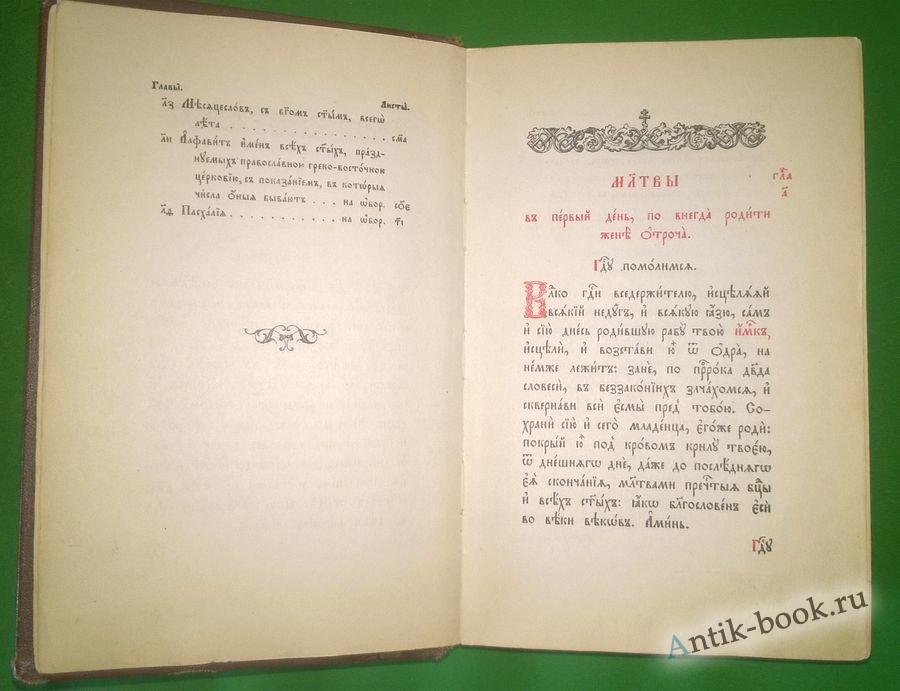 Главы̀. Листы̀.
л҃з Мѣсѧцесло́въ, съ бг҃омъ ст҃ы́мъ, всегѡ̀
лѣ́та . . . . . . . . . . . . . . . . см҃а
л҃и А҆лфави́тъ и҆ме́нъ всѣ́хъ ст҃ы́хъ, пра́зд-
нуемыхъ правосла́вною гре́ко-восто́чною
це́рковїю, съ показа́нїемъ, въ кото̑рыѧ
чи́сла ѻ҆ны̀ быва́ютъ . . . на ѡ҆бор.
л҃ѳ Пасха́лїа . . . . . . . . . . . на ѡ҆бор. т҃і
МЛ҃ТВЫ
гл҃а а҃
въ пе́рвый де́нь, по внегда̀ роди́ти
женѣ̀ ѻ҆троча̀.
Гдⷭ҇ꙋ помо́лимсѧ.
Влⷣко гдⷭ҇и вседержи́телю, и҆сцѣлѧ́ѧй
всѧ́кїй недꙋ́гъ, и҆ всѧ́кꙋю ꙗ҆́зю, са́мъ
и҆ сїю̀ дне́сь роди́вшꙋю рабꙋ̀ твою̀ и҆́мкъ,
и҆сцѣлѝ, и҆ возста́ви ю҆̀ ѿ ѻ҆дра̀, на
не́мже лежи́тъ: занѐ, по прⷪ҇ро́ка дв҃да
словесѝ, въ беззако́нїихъ зача́хомсѧ, и҆
скверна́ви всѝ є҆смы̀ пред̾ тобо́ю. Со-
хранѝ сїю̀ и҆ сего̀ младе́нца, є҆го́же родѝ:
покры́й ю҆̀ под̾ кро́вомъ крилꙋ̀ твоє́ю,
ѿ дне́шнѧгѡ днѐ, да́же до послѣ́днѧгѡ
є҆ѧ̀ сконча́нїѧ, мл҃твами пречⷭ҇тыѧ бцⷣы
и҆ всѣ́хъ ст҃ы́хъ: ꙗ҆́кѡ бл҃гослове́нъ є҆сѝ
во вѣ́ки вѣкѡ́въ. А҆ми́нь.
Гдⷭ҇ꙋ
Antik-book.ru